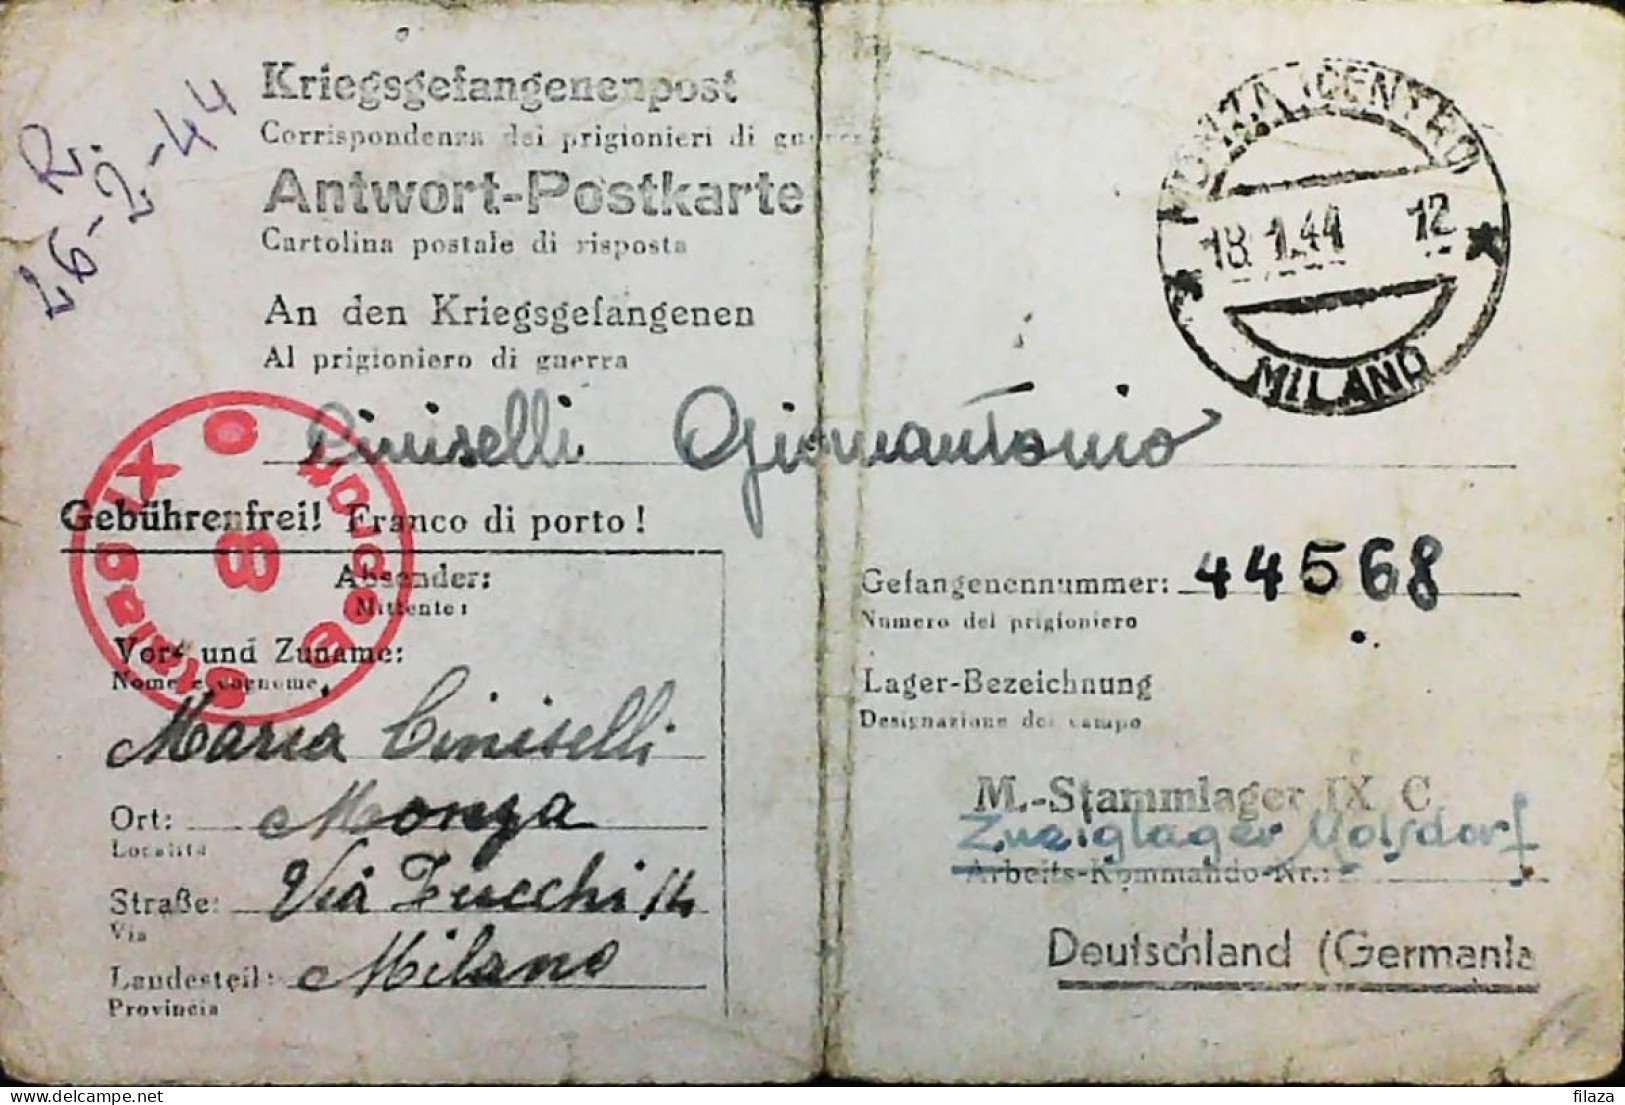 R.
26-2-44
Kriegsgefangenenpost
Corrispondenza dei prigionieri di guerra
Antwort-Postkarte
Cartolina postale di risposta
An den Kriegsgefangenen
Al prigioniero di guerra
Ciniselli Giovantonio
Gebührenfrei! Franco di porto!
Absender:
Mittente:
Vor- und Zuname:
Nome e cognome
Maria Ciniselli
Ort: Monza
Località
Straße: Via Zucchi 14
Via
Landesteil: Milano
Provincia
Stalag IX C
8
MONZA (CENTRO)
18.1.44 12
MILANO
Gefangenennummer: 44568
Numero del prigioniero
Lager-Bezeichnung
Designazione del campo
M.-Stammlager IX C
Zweiglager Molsdorf
Arbeits-Kommando-Nr.:
Deutschland (Germania
filaza